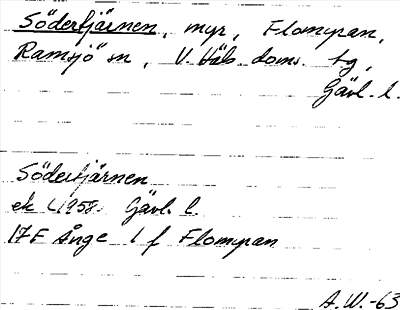 Södertjärnen, myr, Flomyran,
Ramsjö sn, V. Häls. doms. tg,
Gävl. l.
Södertjärnen
ek 1958. Gävl. l.
17F Ånge l f Flomyran
A.W.-63